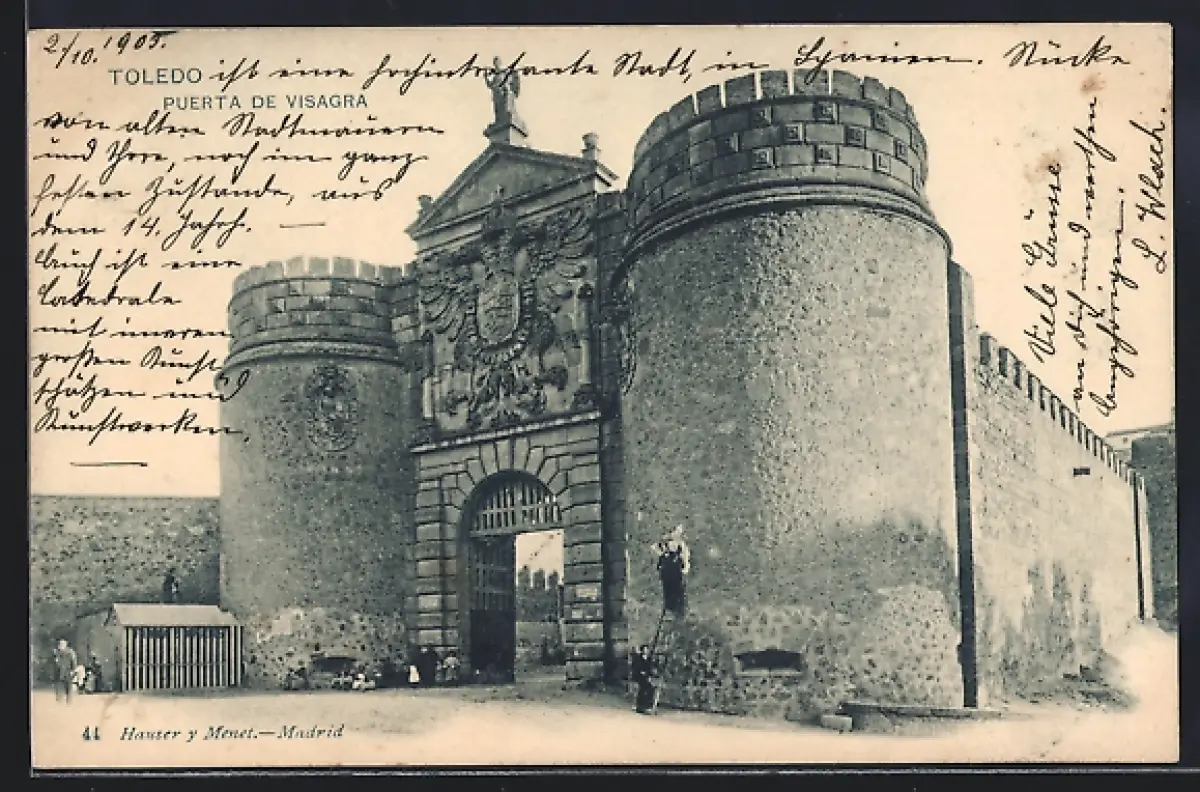 2/10. 1905.
TOLEDO ist eine hochinteressante Stadt, in Spanien. Stücke
PUERTA DE VISAGRA
von alten Stadtmauern
und Thore, noch im ganz
festen Zustande, aus
dem 14. Jahrh.
Auch ist eine
Catedrale
mit inneren
großen Kunst
schätzen und
Kunstwerken.
Viele Grüsse
an dich und werthen
Angehörigen.
L. Wlach.
44 Hauser y Menet.—Madrid